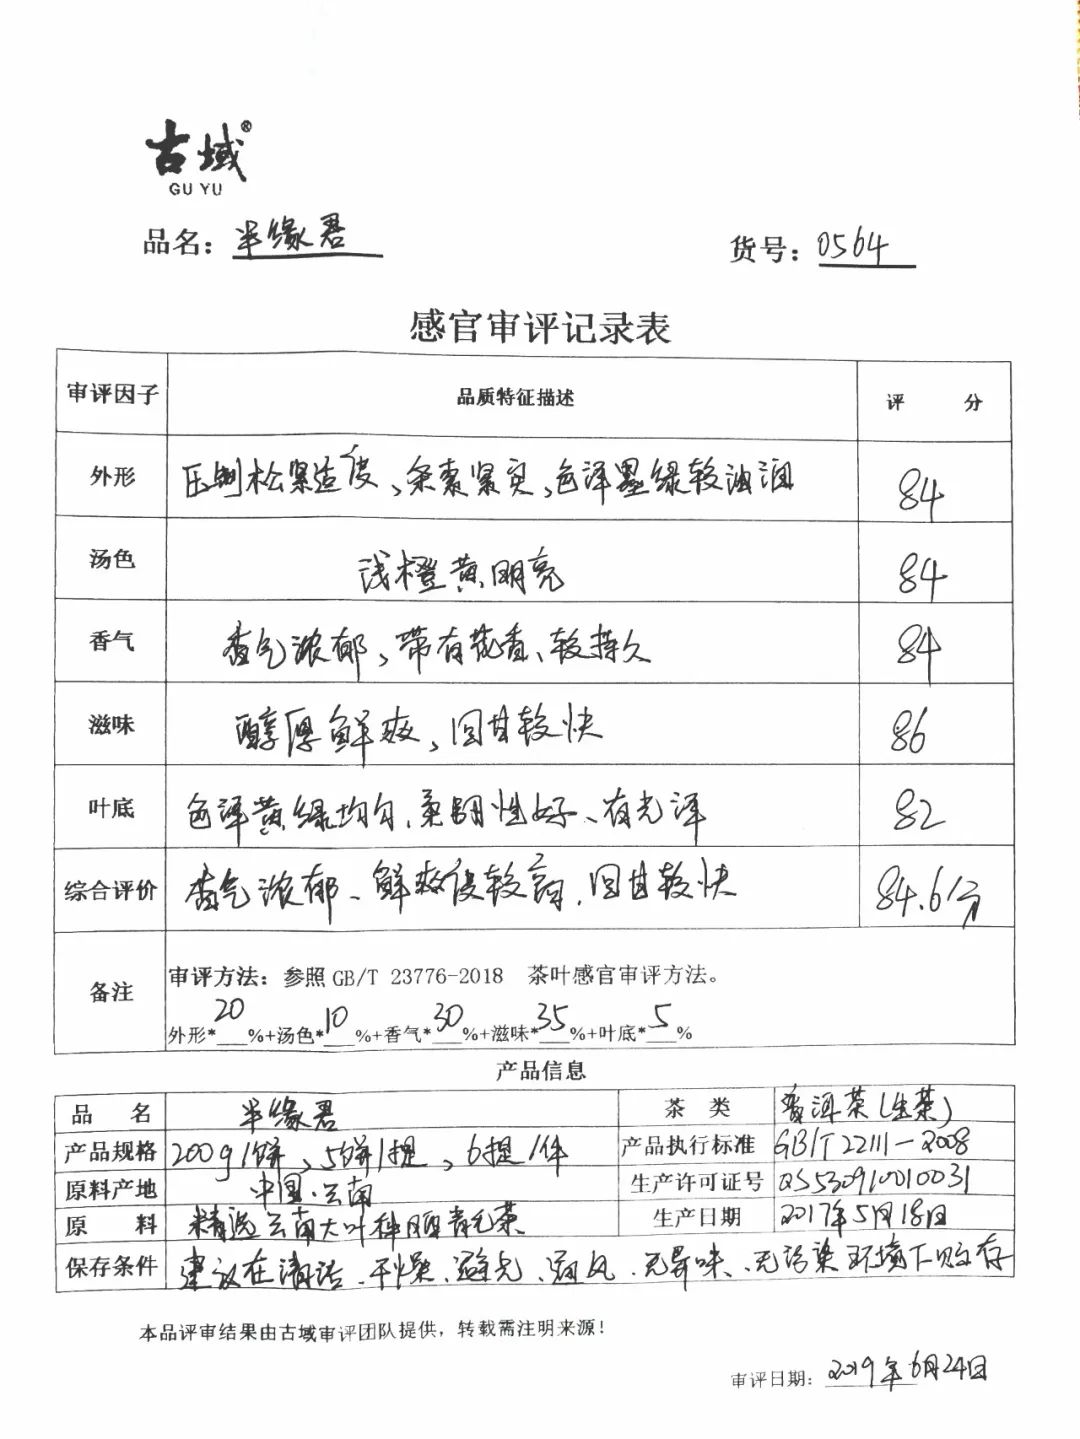 古域®
GU YU
品名：半缘君 货号：0564
感官审评记录表
审评因子 品质特征描述 评 分
外形 压制松紧适度、条索紧实、色泽墨绿较油润 84
汤色 浅橙黄明亮 84
香气 香气浓郁、带有花香、较持久 84
滋味 醇厚鲜爽、回甘较快 86
叶底 色泽黄绿均匀、柔韧性好、有光泽 82
综合评价 香气浓郁、鲜爽度较高、回甘较快 84.6分
备注 审评方法：参照GB/T 23776-2018 茶叶感官审评方法。
外形*20%+汤色*10%+香气*30%+滋味*35%+叶底*5%
产品信息
品 名 半缘君 茶 类 普洱茶(生茶)
产品规格 200g/饼、5饼/提、6提/件 产品执行标准 GB/T 22111-2008
原料产地 中国·云南 生产许可证号 QS530910010031
原 料 精选云南大叶种晒青毛茶 生产日期 2017年5月18日
保存条件 建议在清洁、干燥、避光、通风、无异味、无污染环境下贮存
本品评审结果由古域审评团队提供，转载需注明来源！
审评日期：2019年6月24日